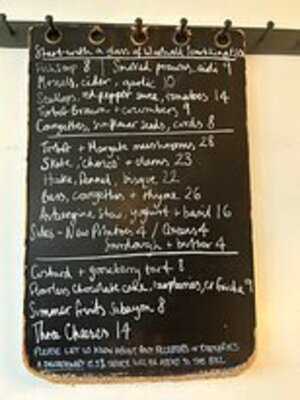 Start with a glass of Westwell Sparkling
Fish Soup 8 | Smoked prawns, aioli 9
Mussels, cider, garlic 10
Scallops, red pepper sauce, tomatoes 14
Turbot Brawn + cucumbers 9
Courgettes, sunflower seeds, curds 8
Turbot + Margate mushrooms 28
Skate, 'chorizo' + clams 23
Hake, fennel, bisque 22
Bass, courgettes + thyme 26
Aubergine stew, yoghurt + basil 16
Sides - New Potatoes 4 / Greens 4
Sourdough + butter 4
Custard + gooseberry tart 8
Flourless chocolate cake, raspberries, cr fraiche 9
Summer fruits Sabayon 8
Three Cheeses 14
PLEASE LET US KNOW ABOUT ANY ALLERGIES OR DIETARIES
A DISCRETIONARY SERVICE WILL BE ADDED TO THE BILL